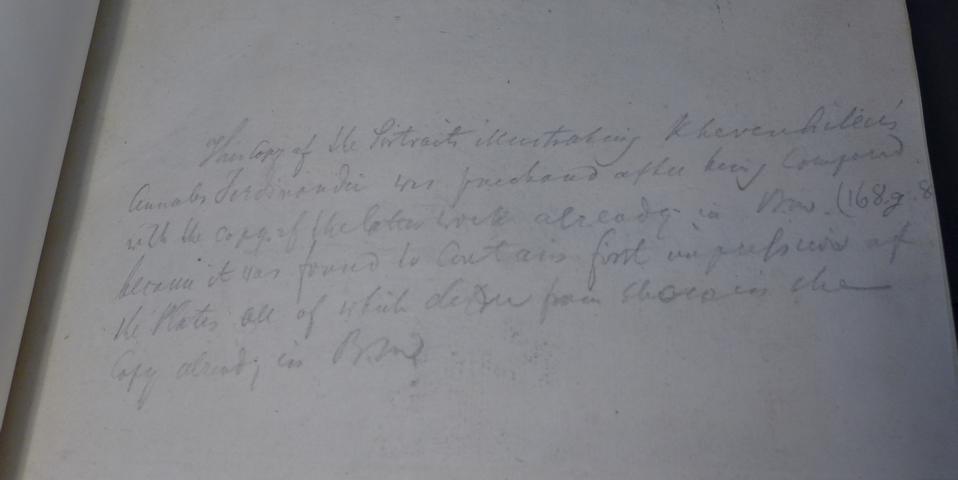 This copy of the Portraits illustrating Khevenhiller's
Annales Ferdinandei was purchased after being compared
with the copy of the latter work already in B.M. (168.g.8
because it was found to contain first impressions of
the Plates all of which differ from those in the
copy already in B.M.